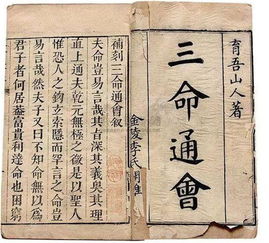 育吾山人著
三命通會
金陵李氏
補刻三命通會叙
夫命豈易言哉其旨深其義奧其理
直上通夫乾元無極之微是以聖人
惟恐人之鈎玄索隱而罕言之命豈
易言哉然夫子又曰不知命無以為
君子者何居蓋富貴利達命也困窮